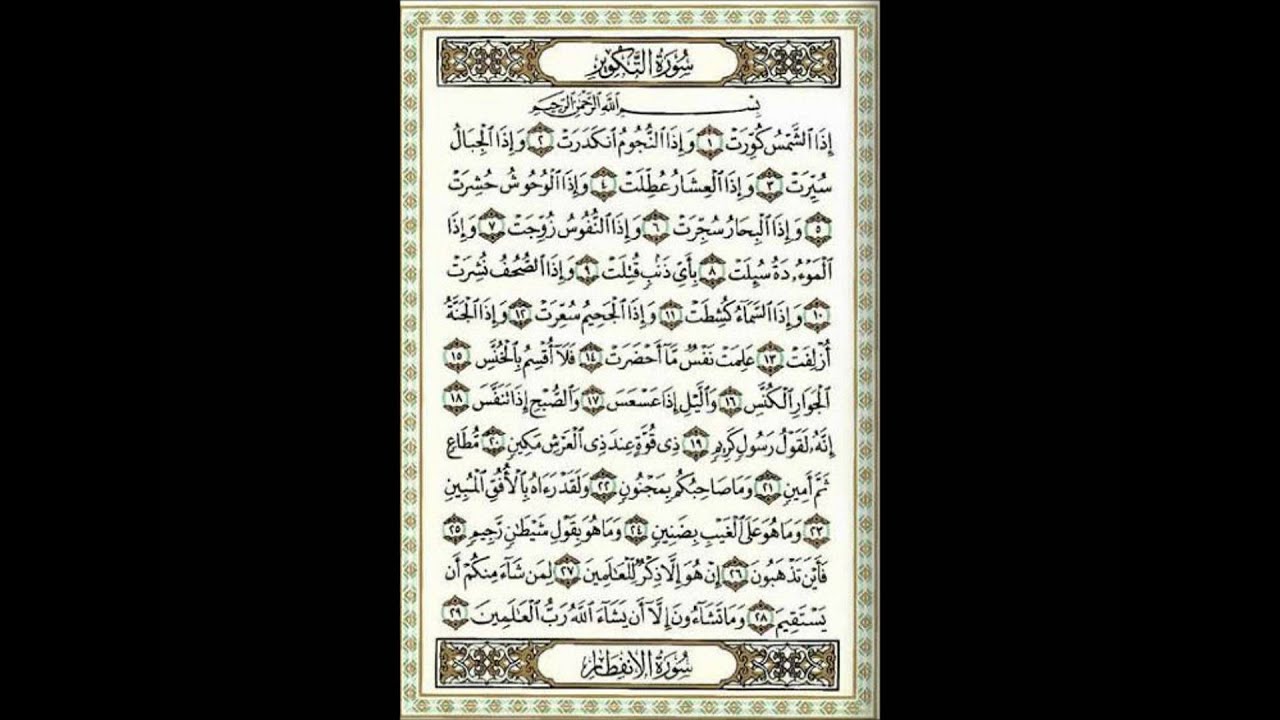 سُورَةُ التَّكْوِيرِ
بِسْمِ ٱللَّهِ ٱلرَّحْمَٰنِ ٱلرَّحِيمِ
إِذَا ٱلشَّمْسُ كُوِّرَتْ ١ وَإِذَا ٱلنُّجُومُ ٱنكَدَرَتْ ٢ وَإِذَا ٱلْجِبَالُ
سُيِّرَتْ ٣ وَإِذَا ٱلْعِشَارُ عُطِّلَتْ ٤ وَإِذَا ٱلْوُحُوشُ حُشِرَتْ
٥ وَإِذَا ٱلْبِحَارُ سُجِّرَتْ ٦ وَإِذَا ٱلنُّفُوسُ زُوِّجَتْ ٧ وَإِذَا
ٱلْمَوْءُۥدَةُ سُئِلَتْ ٨ بِأَىِّ ذَنۢبٍ قُتِلَتْ ٩ وَإِذَا ٱلصُّحُفُ نُشِرَتْ
١٠ وَإِذَا ٱلسَّمَآءُ كُشِطَتْ ١١ وَإِذَا ٱلْجَحِيمُ سُعِّرَتْ ١٢ وَإِذَا ٱلْجَنَّةُ
أُزْلِفَتْ ١٣ عَلِمَتْ نَفْسٌ مَّآ أَحْضَرَتْ ١٤ فَلَآ أُقْسِمُ بِٱلْخُنَّسِ ١٥
ٱلْجَوَارِ ٱلْكُنَّسِ ١٦ وَٱلَّيْلِ إِذَا عَسْعَسَ ١٧ وَٱلصُّبْحِ إِذَا تَنَفَّسَ ١٨
إِنَّهُۥ لَقَوْلُ رَسُولٍ كَرِيمٍ ١٩ ذِى قُوَّةٍ عِندَ ذِى ٱلْعَرْشِ مَكِينٍ ٢٠ مُّطَاعٍ
ثَمَّ أَمِينٍ ٢١ وَمَا صَاحِبُكُم بِمَجْنُونٍ ٢٢ وَلَقَدْ رَءَاهُ بِٱلْأُفُقِ ٱلْمُبِينِ
٢٣ وَمَا هُوَ عَلَى ٱلْغَيْبِ بِضَنِينٍ ٢٤ وَمَا هُوَ بِقَوْلِ شَيْطَٰنٍ رَّجِيمٍ ٢٥
فَأَيْنَ تَذْهَبُونَ ٢٦ إِنْ هُوَ إِلَّا ذِكْرٌ لِّلْعَٰلَمِينَ ٢٧ لِمَن شَآءَ مِنكُمْ أَن
يَسْتَقِيمَ ٢٨ وَمَا تَشَآءُونَ إِلَّآ أَن يَشَآءَ ٱللَّهُ رَبُّ ٱلْعَٰلَمِينَ ٢٩
سُورَةُ الِانفِطَارِ